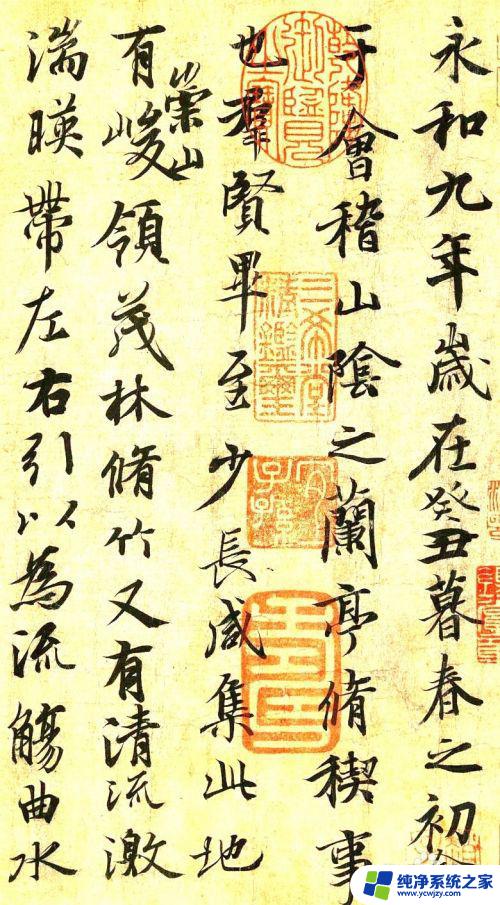 永和九年歲在癸丑暮春之初
于會稽山陰之蘭亭脩稧事
也羣賢畢至少長咸集此地
有崇山峻領茂林脩竹又有清流激
湍暎帶左右引以為流觴曲水
三希堂精鑑璽
宜子孫
纯净系统之家
www.ycwjzy.com